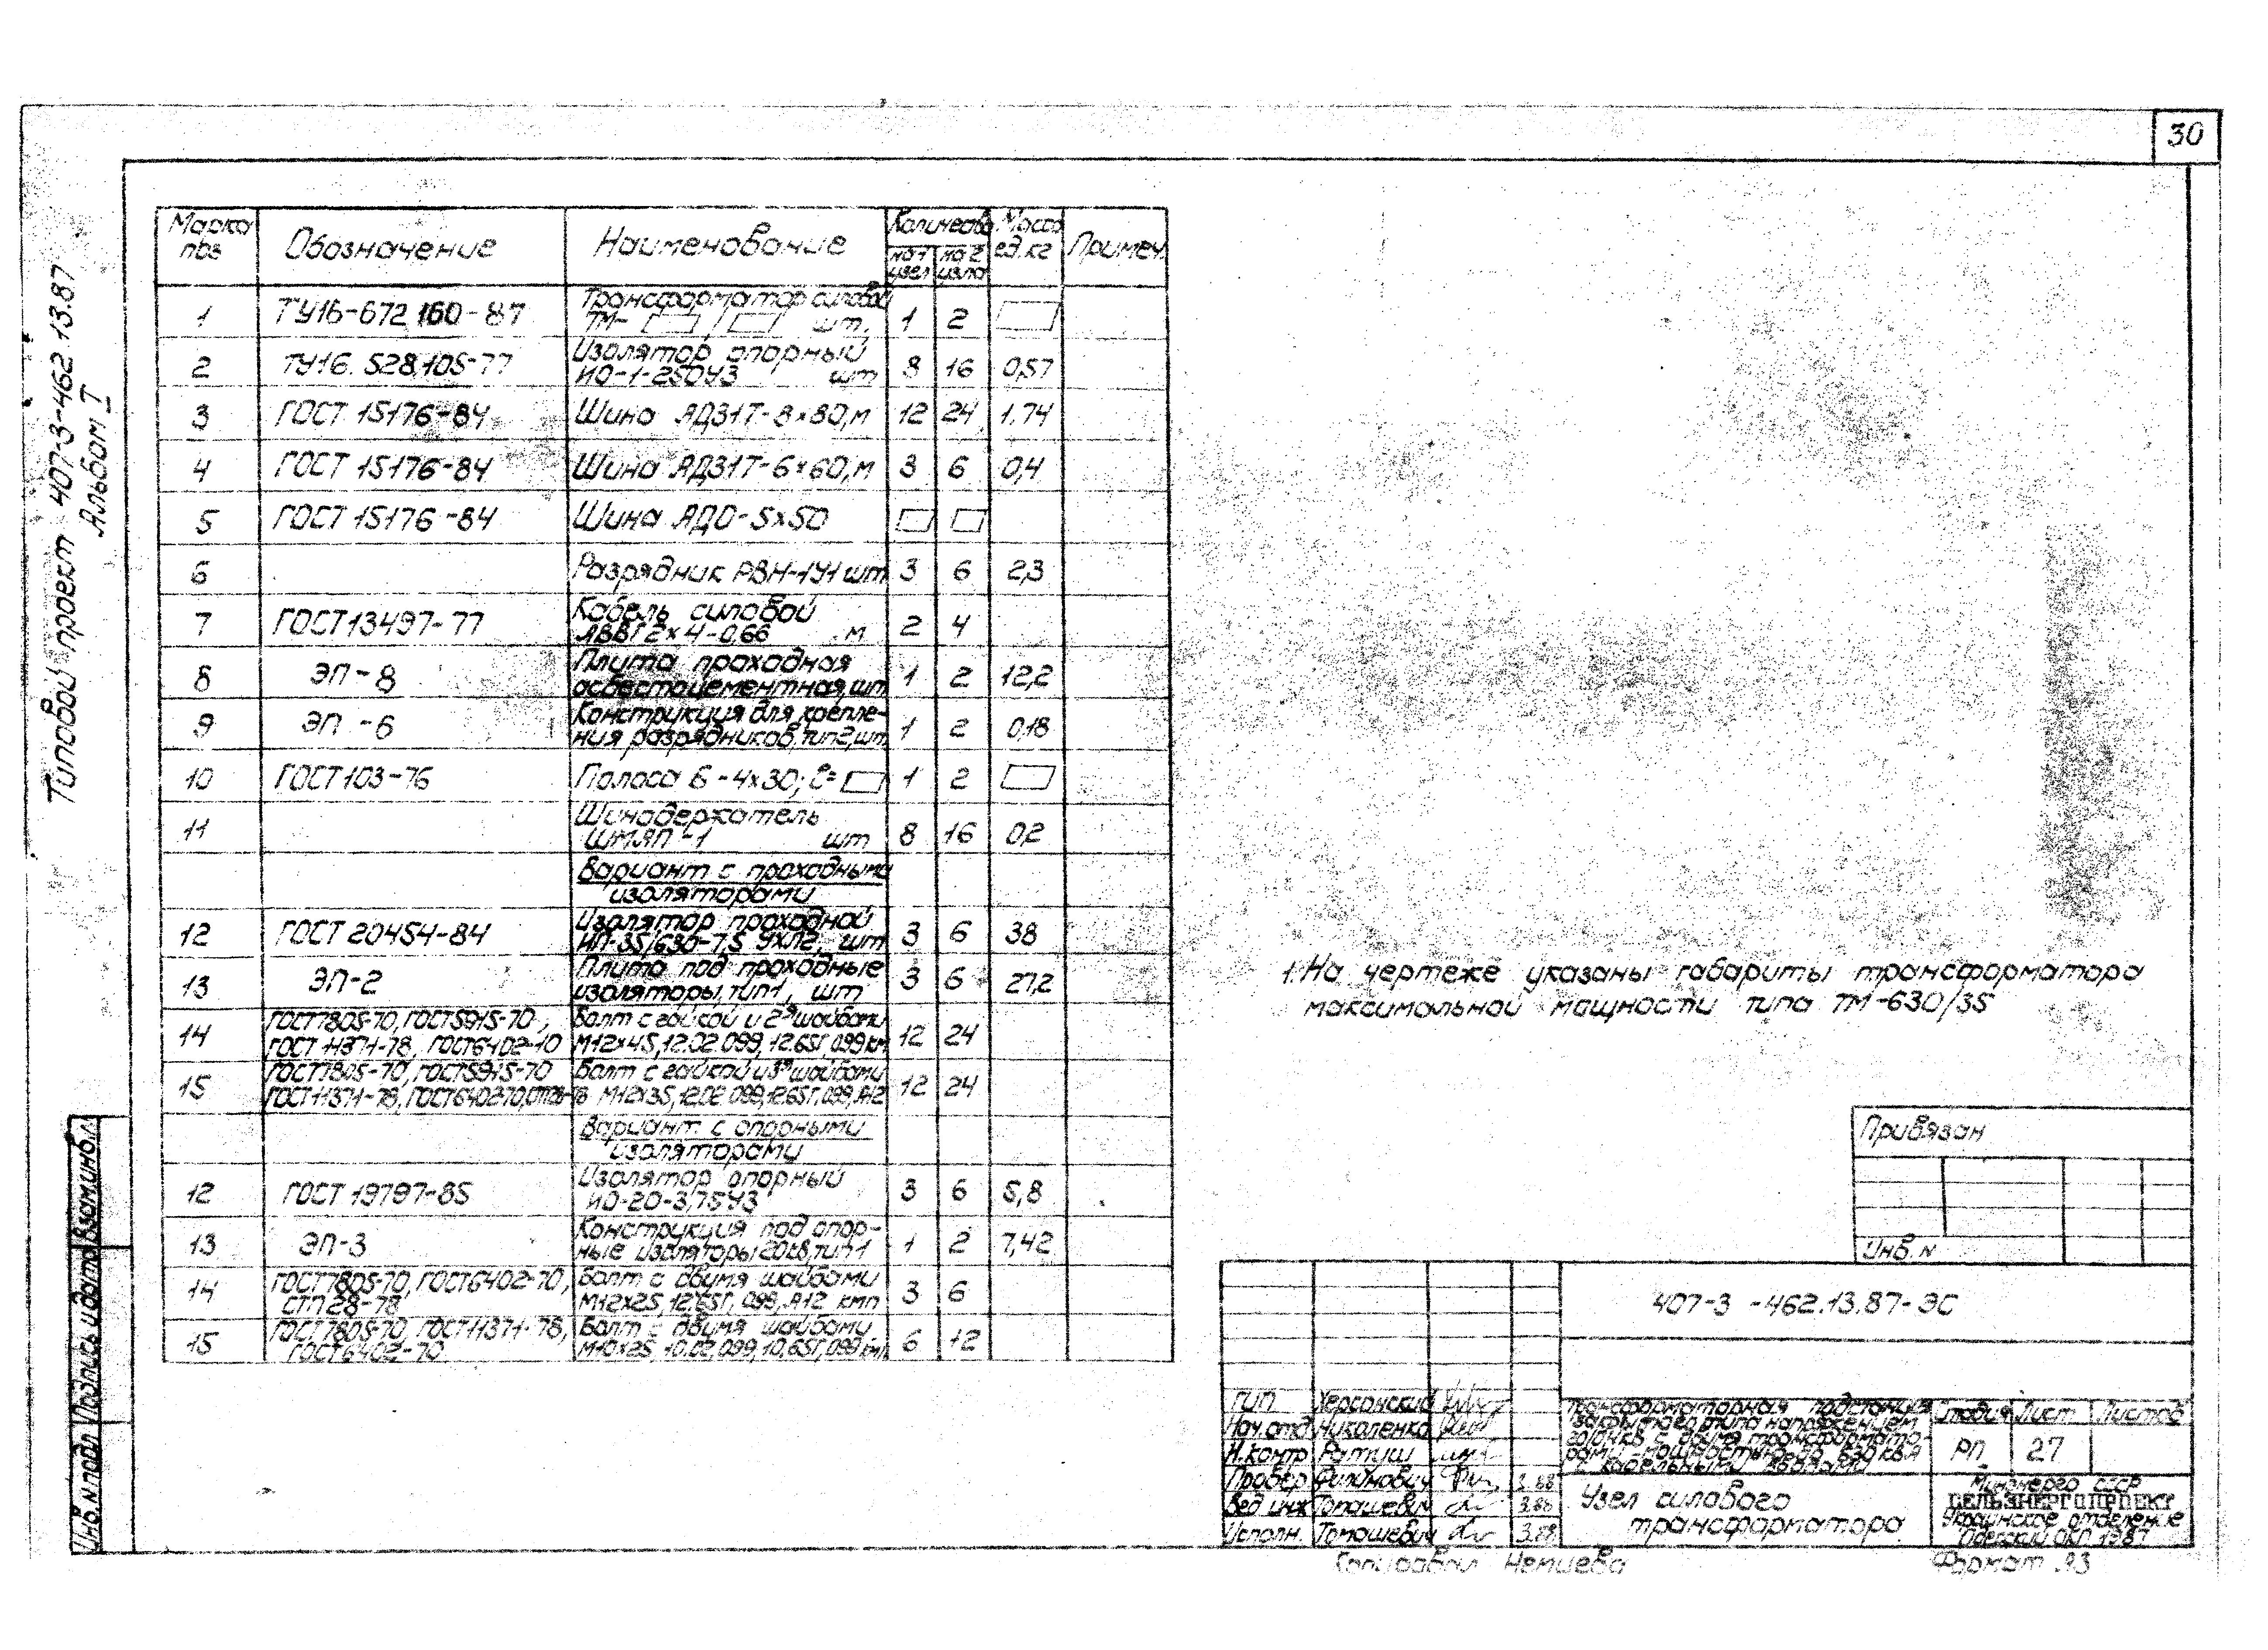 30
Типовой проект 407-3-462.13.87
Альбом I
Марка поз
Обозначение
Наименование
Количество
на 1 узел
на 2 узла
Масса ед. кг
Примеч.
1 ТУ16-672.160-87 Трансформатор силовой
ТМ- □ / □ шт. 1 2 □
2 ТУ16.528.105-77 Изолятор опорный
ИО-1-250У3 шт 8 16 0,57
3 ГОСТ 15176-84 Шина АД31Т-8×80, м 12 24 1.74
4 ГОСТ 15176-84 Шина АД31Т-6×60, м 3 6 0,4
5 ГОСТ 15176-84 Шина АД0-5×50 □ □
6 Разрядник РВН-1У1 шт 3 6 2,3
7 ГОСТ 13497-77 Кабель силовой
АВВГ 2×4-0,66 м 2 4
8 ЭП-8 Плита проходная
асбестоцементная, шт 1 2 12,2
9 ЭП-6 Конструкция для крепле-
ния разрядников, тип2, шт 1 2 0,18
10 ГОСТ 103-76 Полоса Б-4×30; ℓ=□ 1 2 □
11 Шинодержатель
ШМАП-1 шт 8 16 0,2
Вариант с проходными
изоляторами
12 ГОСТ 20454-84 Изолятор проходной
ИП-35/630-7,5 УХЛ2, шт 3 6 38
13 ЭП-2 Плита под проходные
изоляторы, тип1, шт 3 6 27,2
14 ГОСТ7805-70, ГОСТ5915-70, Болт с гайкой и 2я шайбами
ГОСТ 11371-78, ГОСТ6402-70 М12×45, 12.02.099, 12.65Г.099 км 12 24
15 ГОСТ7805-70, ГОСТ5915-70 Болт с гайкой и 3я шайбами
ГОСТ11371-78, ГОСТ6402-70, СТП28-78 М12×35, 12.02.099, 12.65Г.099, А12 12 24
Вариант с опорными
изоляторами
12 ГОСТ 19797-85 Изолятор опорный
ИО-20-3,75У3 3 6 5,8
13 ЭП-3 Конструкция под опор-
ные изоляторы 20кв, тип1 1 2 7,42
14 ГОСТ7805-70, ГОСТ6402-70, Болт с двумя шайбами
СТП 28-78 М12×25, 12.65Г, 099, А12 кмп 3 6
15 ГОСТ7805-70, ГОСТ11371-78, Болт с двумя шайбами
ГОСТ6402-70 М10×25, 10.02.099, 10.65Г.099 кмп 6 12
1. На чертеже указаны габариты трансформатора
максимальной мощности типа ТМ-630/35
Привязан
Инв. N
407-3-462.13.87-ЭС
ГИП Херсонский
Нач.отд Николенко
Н.контр Ратуш
Провер Филинович 3.88
Вед инж Томашевич 3.88
Исполн. Томашевич 3.88
Трансформаторная подстанция
закрытого типа напряжением
с двумя трансформато-
рами мощностью до 630 кВА
с кабельными вводами
Стадия Лист Листов
РП 27
Узел силового
трансформатора
Минэнерго СССР
СЕЛЬЭНЕРГОПРОЕКТ
Украинское отделение
Одесский ОКП 1987
Инв. N подл. Подпись и дата Взам.инв.N
Копировал Немцева
Формат А3